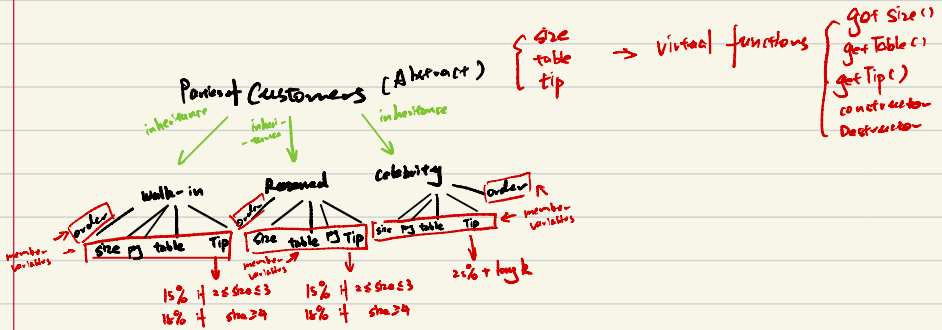 size
table
tip
→ virtual functions
got size()
getTable()
getTip()
constructor
Destructor
Customers (Abstract)
inheritance
inheri-
tance
inheritance
Walk-in
Reserved
Celebrity
order
order
order
size PJ table Tip
size table PJ Tip
size PJ table Tip
member
variables
member
variables
member
variables
15% if 2≤size≤3
18% if size≥4
15% if 2≤size≤3
18% if size≥4
25% +